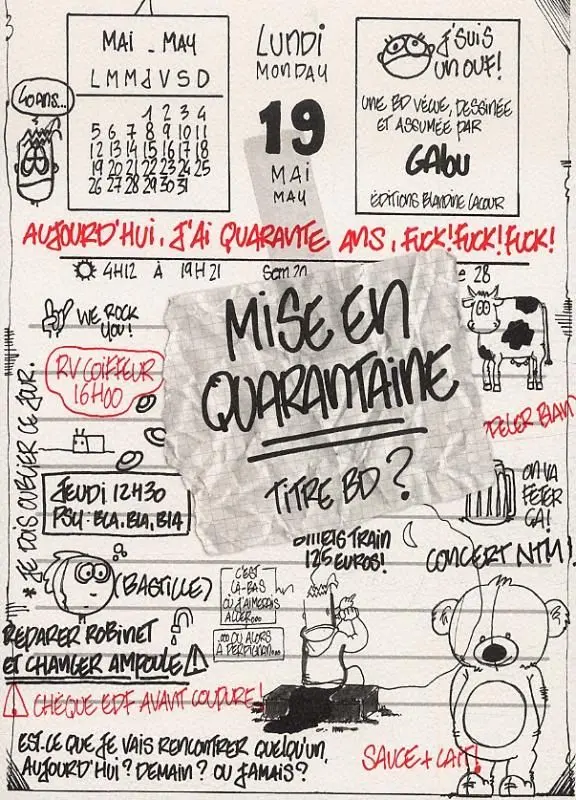 MAI - MAY
L M M J V S D
1 2 3 4
5 6 7 8 9 10 11
12 13 14 15 16 17 18
19 20 21 22 23 24 25
26 27 28 29 30 31
40 ANS...
LUNDI
MONDAY
19
MAI
MAY
J'SUIS
UN OUF!
UNE BD VÉCUE, DESSINÉE
ET ASSUMÉE PAR
GABU
ÉDITIONS BLANDINE LACOUR
AUJOURD'HUI, J'AI QUARANTE ANS, FUCK! FUCK! FUCK!
4H12 À 19H21
Sem 20
28
WE ROCK
YOU!
MISE EN
QUARANTAINE
TITRE BD ?
RV COIFFEUR
16H00
PELER BLAN
* JE DOIS OUBLIER CE JOUR.
JEUDI 12H30
PSY: BLA, BLA, BLA
ON VA
FÊTER
ÇA!
TRAIN
125 EUROS!
CONCERT NTM!
(BASTILLE)
C'EST
LÀ-BAS
OÙ J'AIMERAIS
ALLER...
...OU ALORS
À PERPIGNAN...
RÉPARER ROBINET
ET CHANGER AMPOULE
CHÈQUE EDF AVANT COUPURE!
EST-CE QUE JE VAIS RENCONTRER QUELQU'UN,
AUJOURD'HUI ? DEMAIN ? OU JAMAIS ?
SAUCE + LAIT!